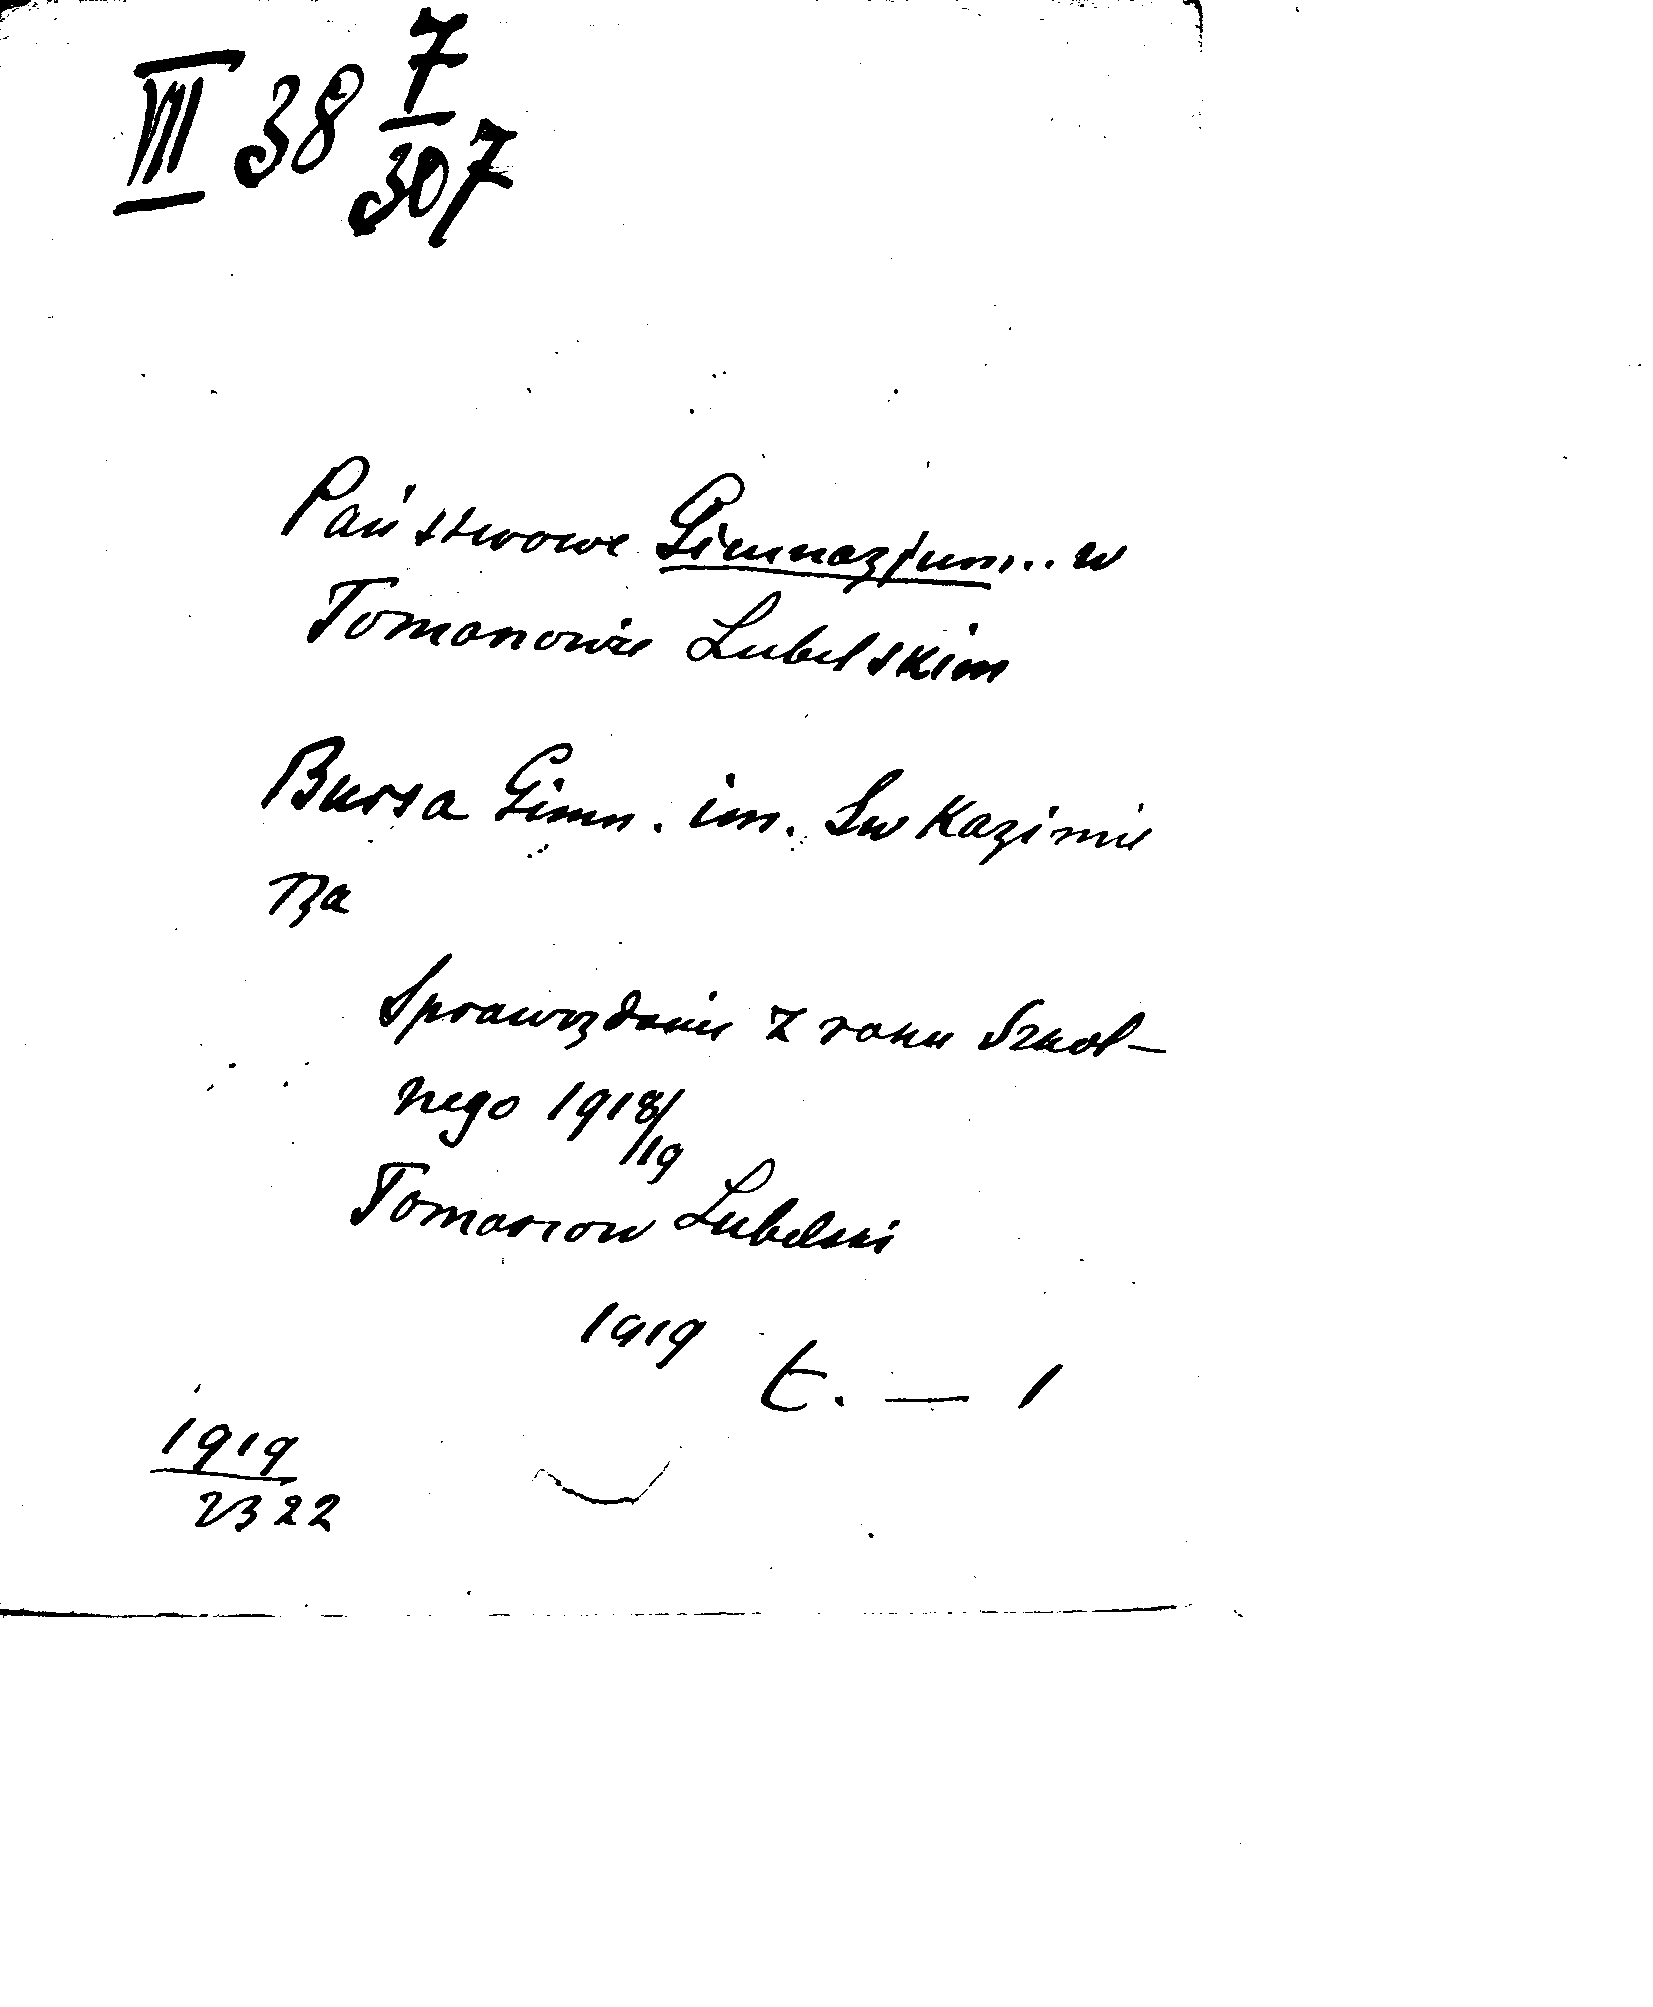 VIII 38 7/307
Państwowe Gimnazjum... w
Tomaszowie Lubelskim
Bursa Gimn. im. Św Kazimie
rza
Sprawozdanie z roku szkol-
nego 1918/19
Tomaszow Lubelski
1919
t. — 1
1919
2322